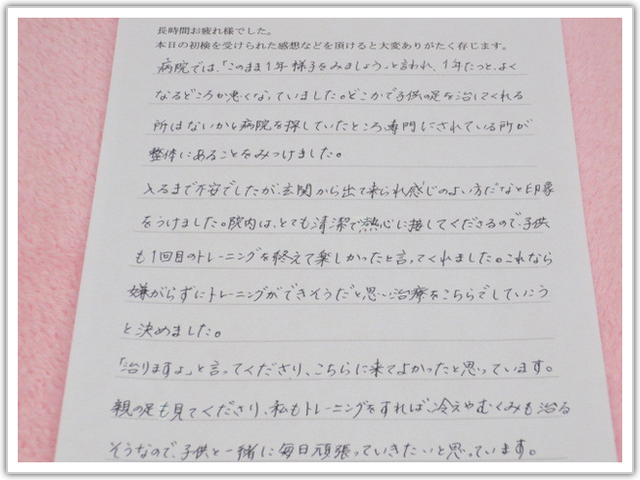 長時間お疲れ様でした。
本日の初検を受けられた感想などを頂けると大変ありがたく存じます。
病院では、「このまま1年様子をみましょう」と言われ、1年たつと、よく
なるどころか悪くなっていました。どこかで子供の足を治してくれる
所はないかと病院を探していたところ、専門にされている所が
整体にあることをみつけました。
入るまで不安でしたが、玄関から出て来られ感じのよい方だなと印象
をうけました。院内は、とても清潔で熱心に接してくださるので、子供
も1回目のトレーニングを終えて楽しかったと言ってくれました。これなら
嫌がらずにトレーニングができそうだと思い治療をこちらでしていこう
と決めました。
「治りますよ」と言ってくださり、こちらに来てよかったと思っています。
親の足も見てくださり、私もトレーニングをすれば、冷えやむくみも治る
そうなので、子供と一緒に毎日頑張っていきたいと思っています。